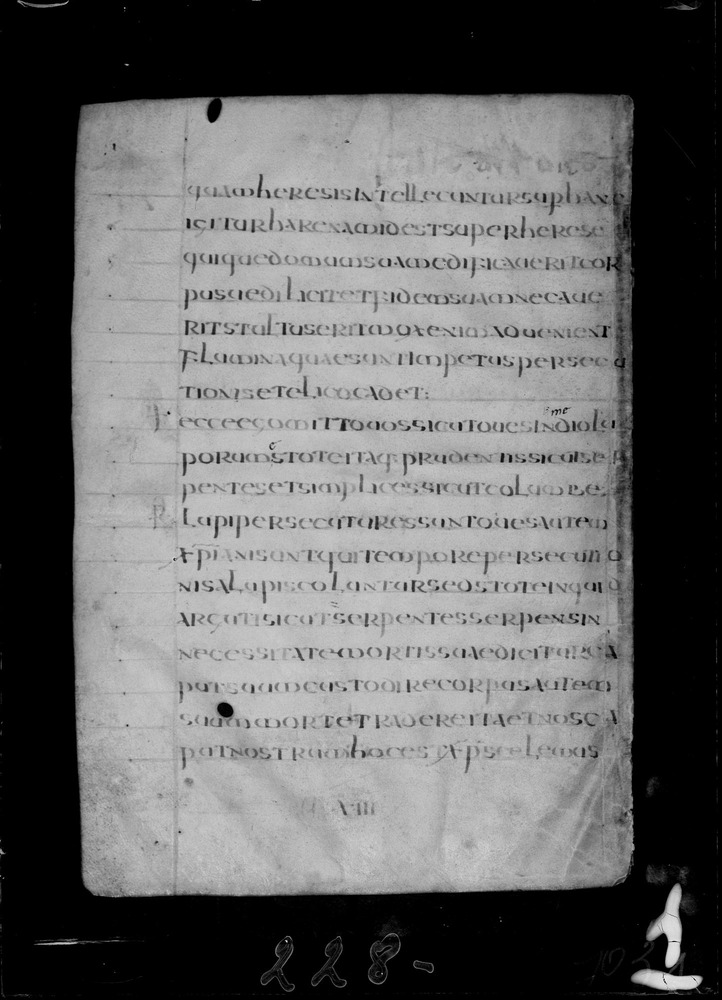 quam heresis intelleguntur sup hanc
igitur harenam id est super herese
quiquae domum suam edificauerit cor
pus aedilicit et fidem suam necaue
rit stultus erit quoxenim aduenient
flumina quae sunt impetus persecu
tionis et elico cadet:
ecce ego mitto uos sicut oues in dio lu
porum stote itaq· prudentis sicut se
pentes et simplices sicut columbe·
lupi persecutures sunt oues autem
xp̅iani sunt qui tempore persecuti o
nis a lupis colantur s· estote inqui
arguti sicut serpentes serpens in
necessitatem mortis suae dicitur ca
put suum custodire corpus autem
suum morte tradere ita et nos ca
put nostrum hoc est xp̅s celemus
XIII
228-
1